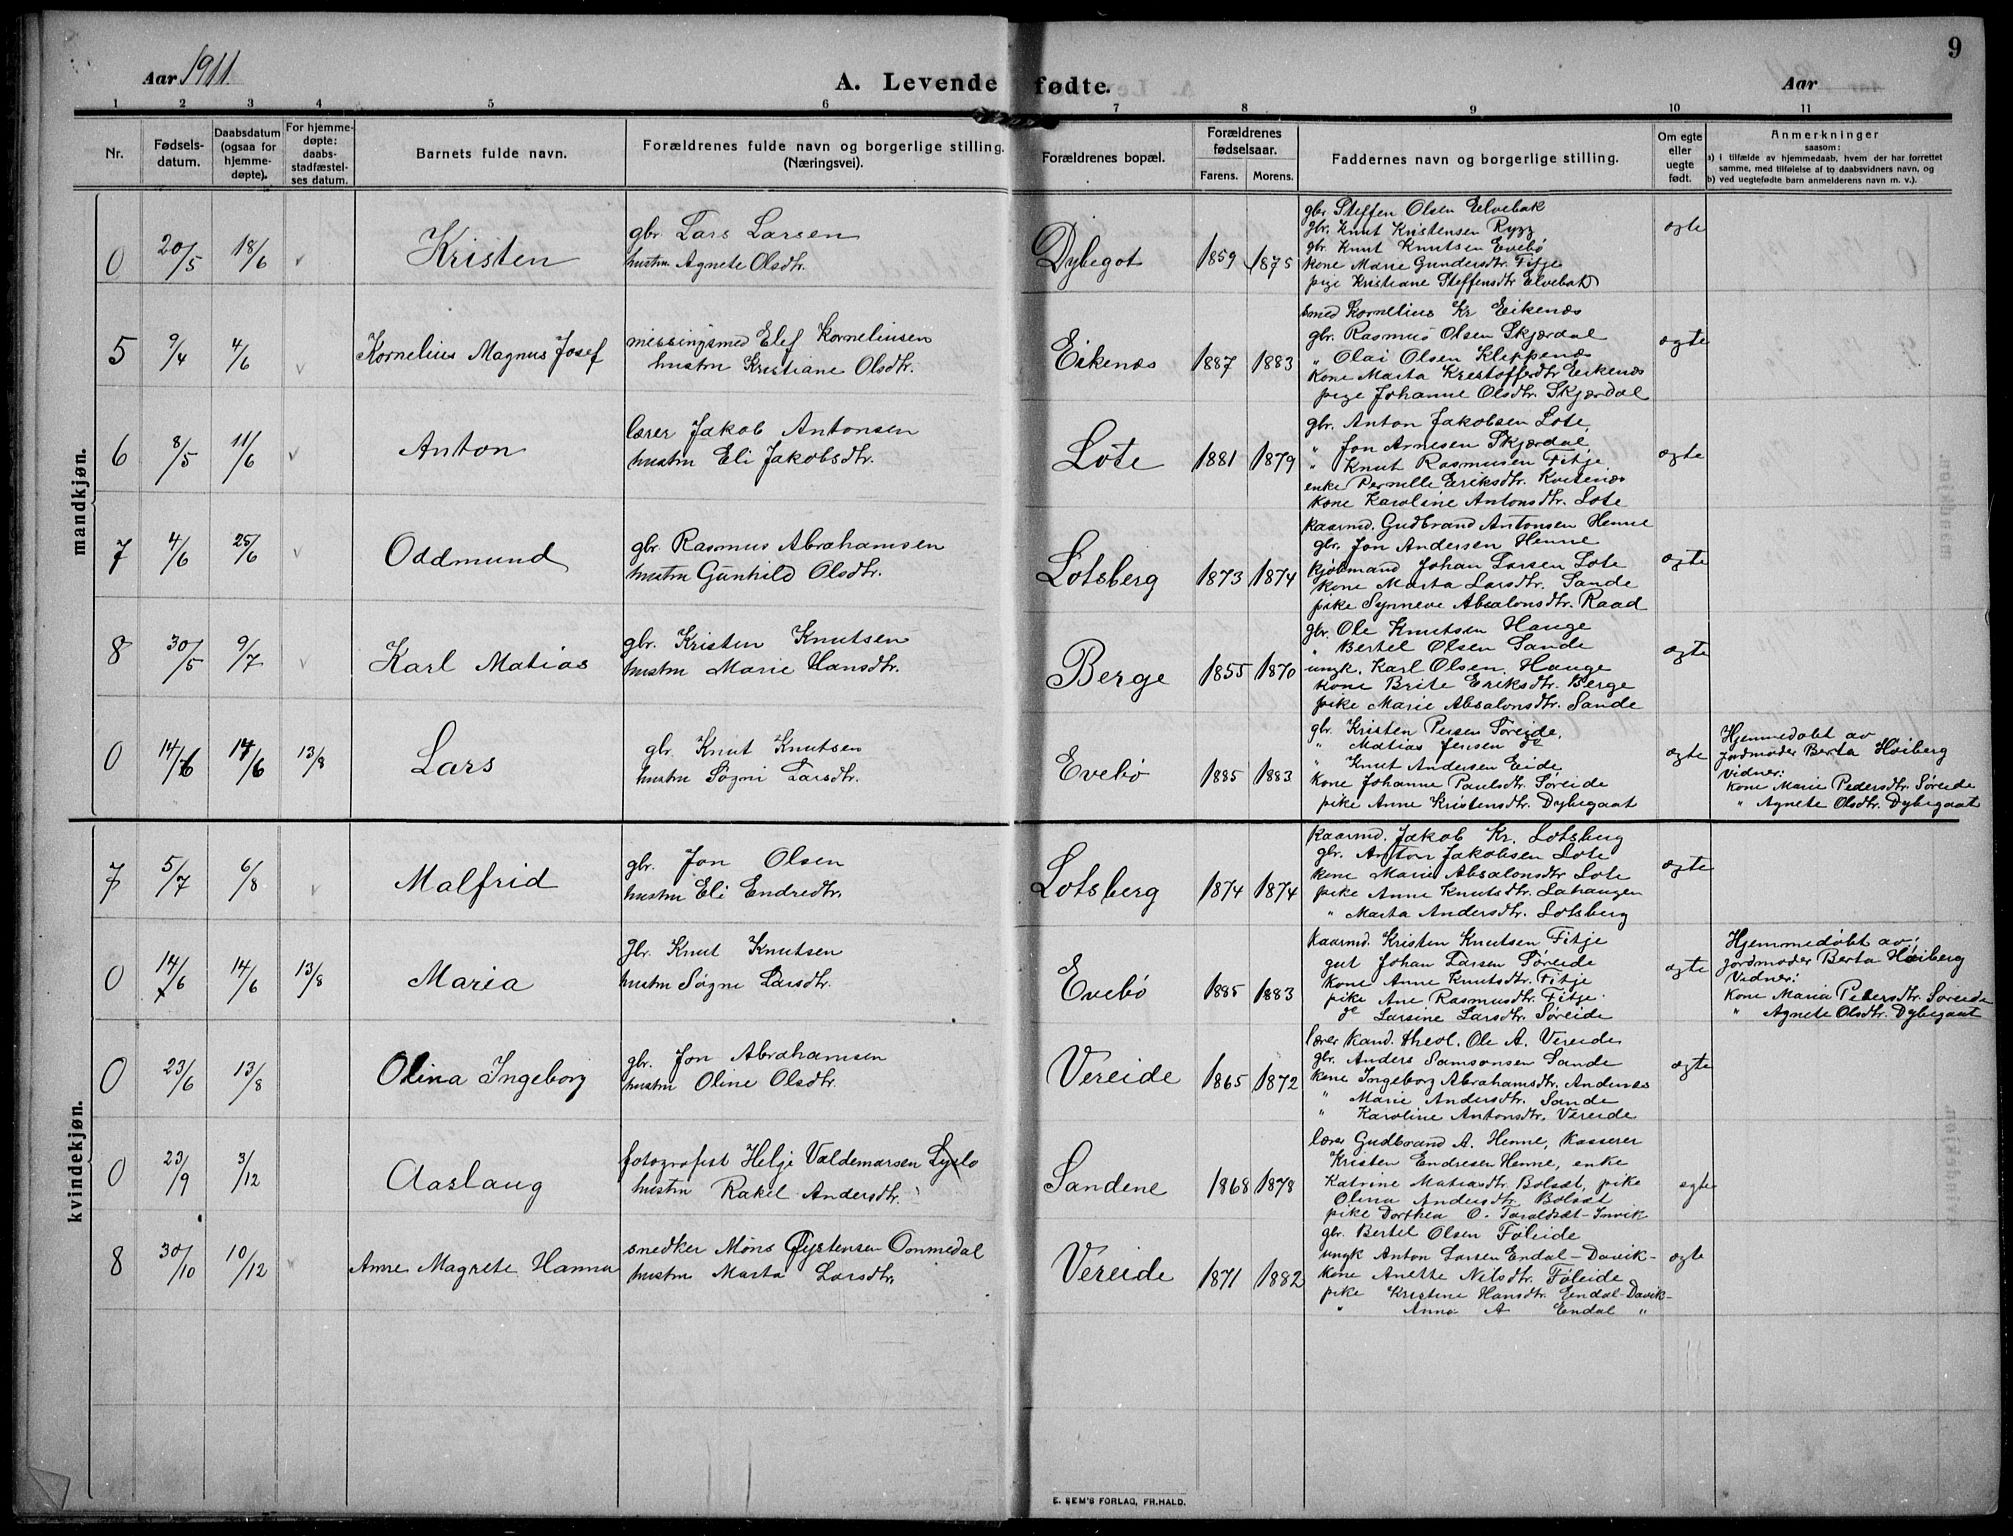 9
Aar 1911.
A. Levende fødte.
Aar
1 2 3 4 5 6 7 8 9 10 11
Nr.
Fødsels-
datum.
Daabsdatum
(ogsaa for
hjemme-
døpte).
For hjemme-
døpte:
daabs-
stadfæstel-
ses datum.
Barnets fulde navn.
Forældrenes fulde navn og borgerlige stilling.
(Næringsvei).
Forældrenes bopæl.
Forældrenes
fødselsaar.
Farens. Morens.
Faddernes navn og borgerlige stilling.
Om egte
eller
uegte
født.
Anmerkninger
saasom:
a) i tilfælde av hjemmedaab, hvem der har forrettet
samme, med tilføielse af to daabsvidners navn, og
b) ved uegtefødte barn anmelderens navn m. v.).
mandkjøn.
0 20/5 18/6 Kristen
gbr. Lars Larsen
hustru Agnete Olsdtr.
Dybegot 1859 1875
gbr. Steffen Olsen Elvebak
gbr. Knut Kristensen Rygg
gbr. Knut Knutsen Evebø
kone Marie Gundersdtr. Fitje
pige Kristiane Steffensdtr Elvebak
ægte
5 9/4 4/6 Kornelius Magnus Josef
messingsmed Elef Korneliusen
hustru Kristiane Olsdtr.
Eikenæs 1887 1883
smed Kornelius Kr Eikenæs
gbr. Rasmus Olsen Skjærdal
" Olai Olsen Kleppenæs
kone Marta Krestofferdtr Eikenæs
pige Johanne Olsdtr. Skjærdal
ægte
6 8/5 11/6 Anton
lærer Jakob Antonsen
hustru Eli Jakobsdtr.
Lote 1881 1879
gbr. Anton Jakobsen Lote,
" Jon Arnesen Skjærdal,
" Knut Rasmusen Fitje
enke Pernille Eriksdtr. Kvitenæs
kone Karoline Antonsdtr. Lote
ægte
7 4/6 25/6 Oddmund
gbr. Rasmus Abrahamsen
hustru Gunhild Olsdtr.
Lotsberg 1873 1874
kaarmd. Gudbrand Antonsen Henne
gbr. Jon Andersen Henne
kjøbmand Johan Larsen Lote
kone Marta Larsdtr. Sande
pike Synneve Absalonsdtr. Raad
ægte
8 30/5 9/7 Karl Matias
gbr. Kristen Knutsen
hustru Marie Hansdtr.
Berge 1855 1870
gbr. Ole Knutsen Hauge
" Bertel Olsen Sande
ungk. Karl Olsen Hauge
kone Brite Eriksdtr. Berge
pike Marie Absalonsdtr. Sande
ægte
0 14/6 14/6 13/8 Lars
gbr. Knut Knutsen
hustru Søgni Larsdtr.
Evebø 1885 1883
gbr. Kristen Persen Søreide,
" Matias Jensen do
" Knut Andersen Eide
kone Johanne Paulsdtr. Søreide
pike Anne Kristensdtr. Dybegaat
ægte
Hjemmedøbt av
jordmoder Berta Høiberg
vidner:
kone Marie Pedersdtr. Søreide
" Agnete Olsdtr. Dybegaat
kvindekjøn.
7 5/7 6/8 Malfrid
gbr. Jon Olsen
hustru Eli Endredtr.
Lotsberg 1874 1874
kaarmd. Jakob Kr. Lotsberg
gbr. Anton Jakobsen Lote
kone Marie Absalonsdtr Lote
pike Anne Knutsdtr. Lahaugen
" Marta Andersdtr. Lotsberg
ægte
0 14/6 14/6 13/8 Maria
gbr. Knut Knutsen
hustru Søgne Larsdtr.
Evebø 1885 1883
kaarmd. Kristen Knutsen Fitje
gut Johan Larsen Søreide
kone Anne Knutsdtr. Fitje
pike Ane Rasmusdtr. Fitje
do Larsine Larsdtr. Søreide
ægte
Hjemmedøbt av:
jordmoder Berta Høiberg
Vidner:
kone Maria Pedersdtr. Søreide
" Agnete Olsdtr. Dybegaat
0 23/6 13/8 Olina Ingeborg
gbr. Jon Abrahamsen
hustru Oline Olsdtr.
Vereide 1865 1872
lærer kand. theol. Ole A. Vereide
gbr. Anders Samsonsen Sande
kone Ingeborg Abrahamsdtr. Andenæs
" Marie Andersdtr. Sande
" Karoline Antonsdtr. Vereide
ægte
0 23/9 3/12 Aaslaug
fotografist Helje Valdemarsen Lyslo
hustru Rakel Andersdtr.
Sandene 1868 1878
lærer Gudbrand A. Henne, kasserer
Kristen Endresen Henne, enke
Katrine Matiasdtr Bolsæt, pike
Olina Andersdtr. Bolsæt
pike Dorthea O. Taraldsæt-Invik
ægte
8 30/10 10/12 Anne Magrete Hanna
snedker Møns Øystensen Ommedal
hustru Marta Larsdtr.
Vereide 1871 1882
gbr. Bertel Olsen Føleide
ungk Anton Larsen Endal-Davik-
kone Anette Nilsdtr. Føleide
pike Kristine Hansdtr. Endal-Davik-
" Anna A Endal "
ægte
E. SEM'S FORLAG, FR.HALD.